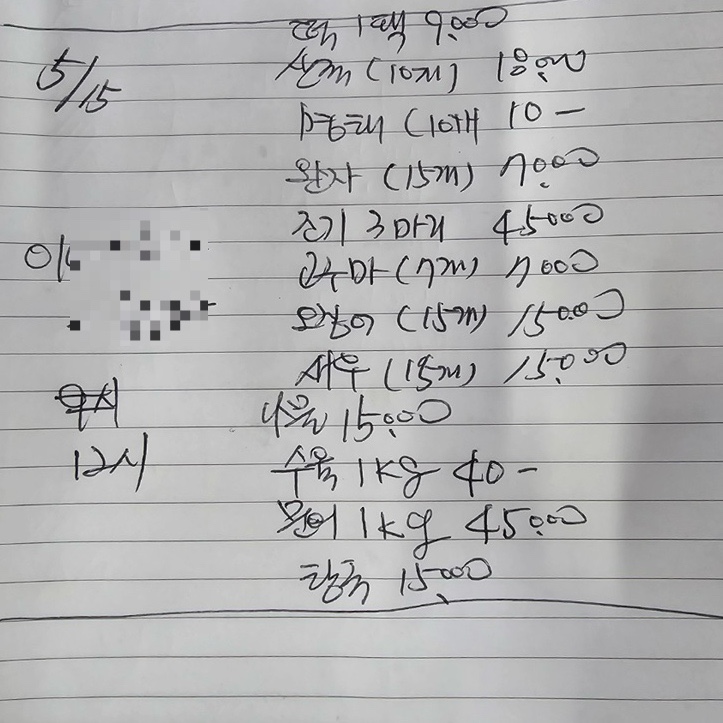 1팩 9,000
5/15
산적 (10개) 18,000
동태 (10개 10-
완자 (15개) 7,000
조기 3마리 45000
고추마 (7개) 7000
오징어 (15개) 15000
새우 (15개) 15,000
나물 15,000
12시
수육 1kg 40-
문어 1kg 45,000
탕국 15,000